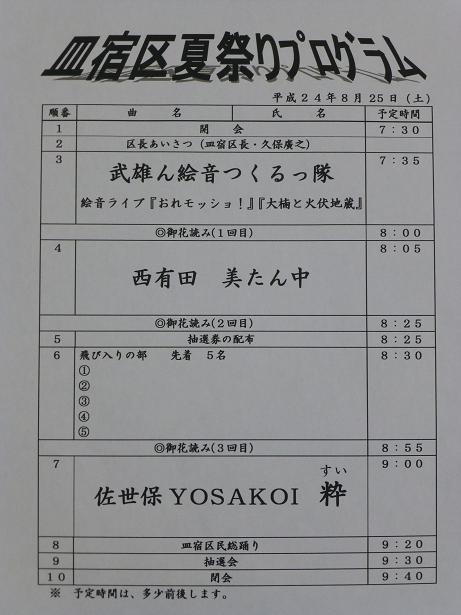 皿宿区夏祭りプログラム
平成２４年８月２５日（土）
順番 曲名 氏名 予定時間
１ 開会 ７：３０
２ 区長あいさつ（皿宿区長・久保廣之）
３ 武雄ん絵音つくるっ隊 ７：３５
絵音ライブ『おれモッショ！』『大楠と火伏地蔵』
◎御花読み(１回目) ８：００
４ 西有田　美たん中 ８：０５
◎御花読み(２回目) ８：２５
５ 抽選券の配布 ８：２５
６ 飛び入りの部　先着　５名 ８：３０
①
②
③
④
⑤
◎御花読み(３回目) ８：５５
７ ９：００
すい
佐世保 YOSAKOI 粋
８ 皿宿区民総踊り ９：２０
９ 抽選会 ９：３０
１０ 閉会 ９：４０
※　予定時間は、多少前後します。